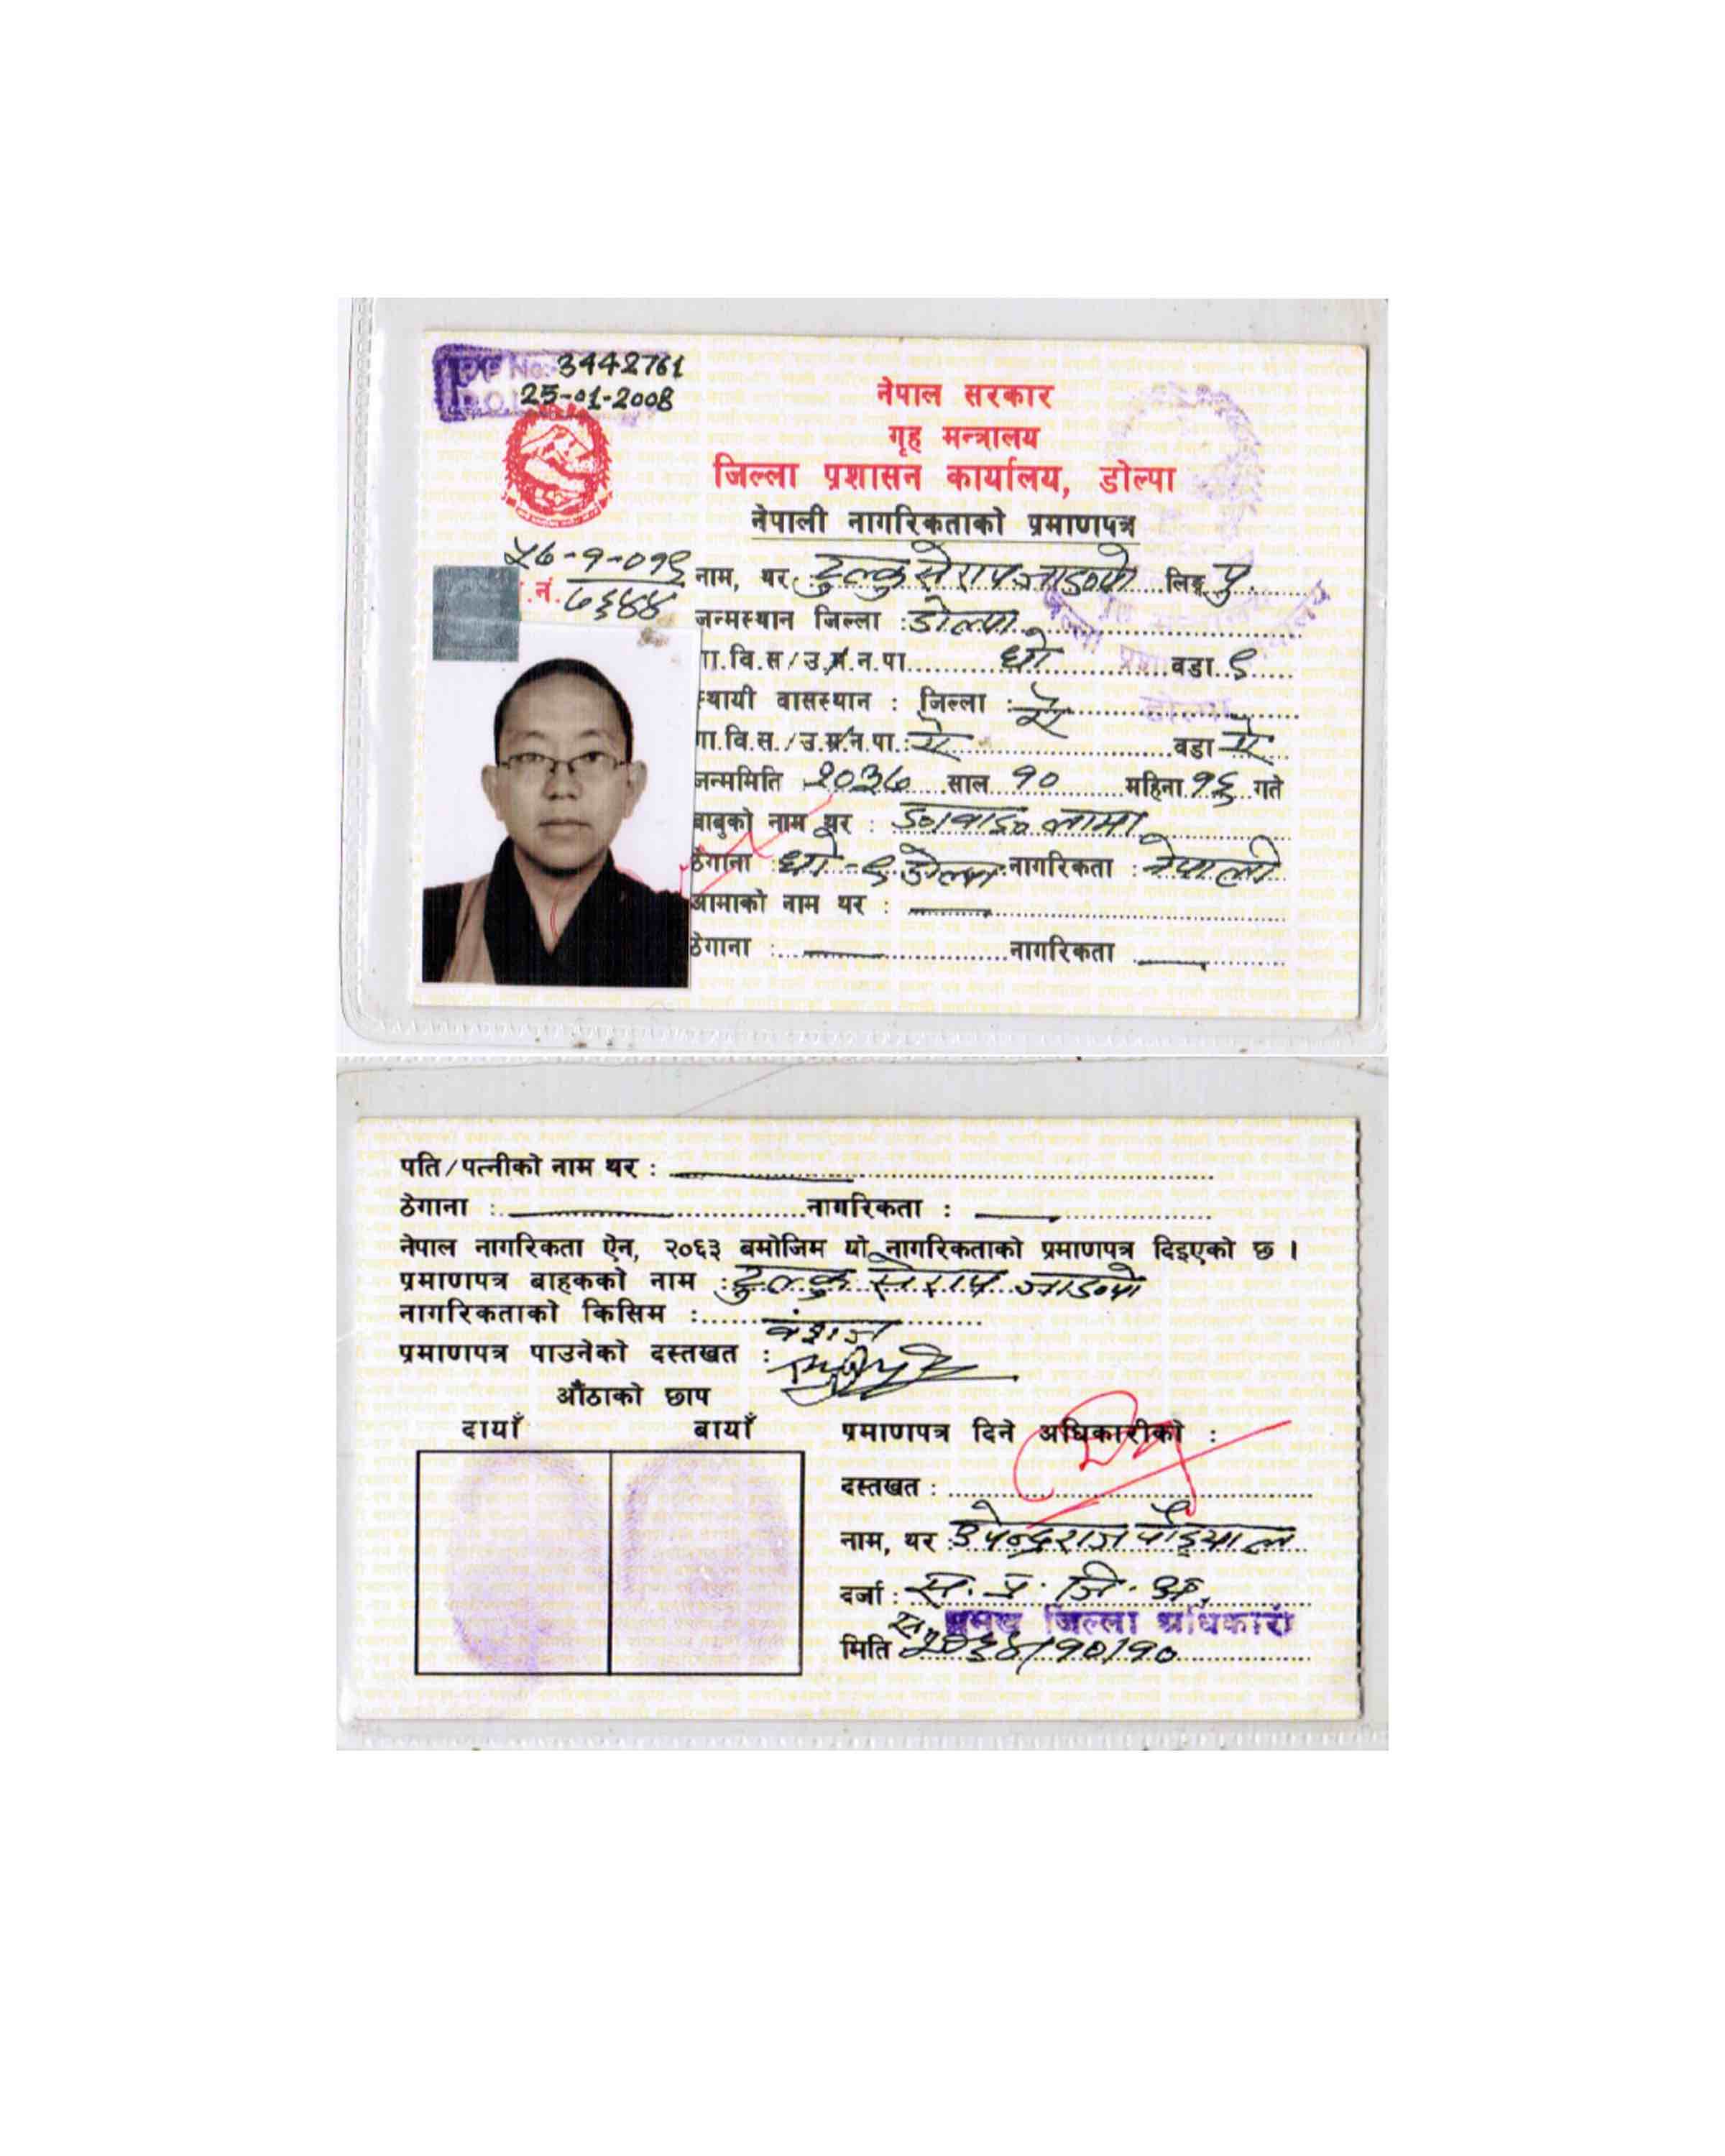 PP No:-3442761
25-01-2008
नेपाल सरकार
गृह मन्त्रालय
जिल्ला प्रशासन कार्यालय, डोल्पा
नेपाली नागरिकताको प्रमाणपत्र
नं.
नाम, थर: टुल्कु सेराप जाङपो लिङ्ग पु.
जन्मस्थान जिल्ला : डोल्पा
गा.वि.स/उ.म.न.पा. धो वडा ९
स्थायी वासस्थान : जिल्ला : ऐ
गा.वि.स./उ.म.न.पा.: ऐ वडा ऐ
जन्ममिति २०३७ साल १० महिना १६ गते
बाबुको नाम थर : लामा
ठेगाना : धो-९ डोल्पा नागरिकता : नेपाली
आमाको नाम थर :
ठेगाना : नागरिकता
पति/पत्नीको नाम थर :
ठेगाना : नागरिकता :
नेपाल नागरिकता ऐन, २०६३ बमोजिम यो नागरिकताको प्रमाणपत्र दिइएको छ ।
प्रमाणपत्र बाहकको नाम : टुल्कु सेराप जाङपो
नागरिकताको किसिम : वंशज
प्रमाणपत्र पाउनेको दस्तखत :
औंठाको छाप
दायाँ बायाँ
प्रमाणपत्र दिने अधिकारीको :
दस्तखत :
नाम, थर उपेन्द्रराज पौड्याल
दर्जा : स. प्र. जि. अ.
स. प्रमुख जिल्ला अधिकारी
मिति २०६४/१०/१०